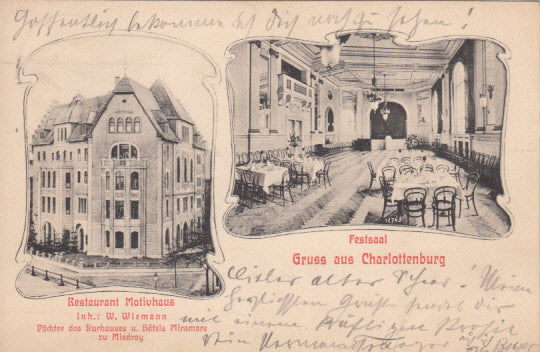 Hoffentlich bekommen ist Dich noch zu sehen!
1276
Festsaal
Gruss aus Charlottenburg
Restaurant Motivhaus
Inh.: W. Wiemann
Pächter des Kurhauses u. Hôtels Miramare
zu Misdroy
Lieber alter Meinen
herzlichsten Gruss sendet Dir
mit einem kräftigen Prosit
Dein